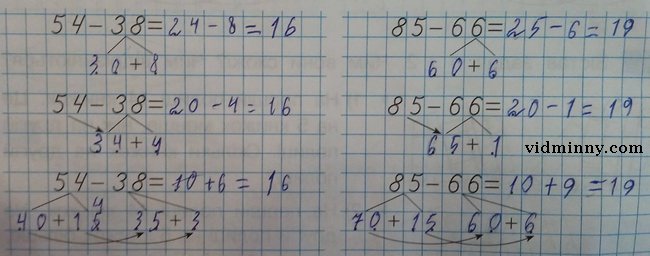 54-38=24-8=16
30+8
54-38=20-4=16
34+4
54-38=10+6=16
4
40+15 35+3
85-66=25-6=19
60+6
85-66=20-1=19
65+1
vidminny.com
85-66=10+9=19
70+15 60+6